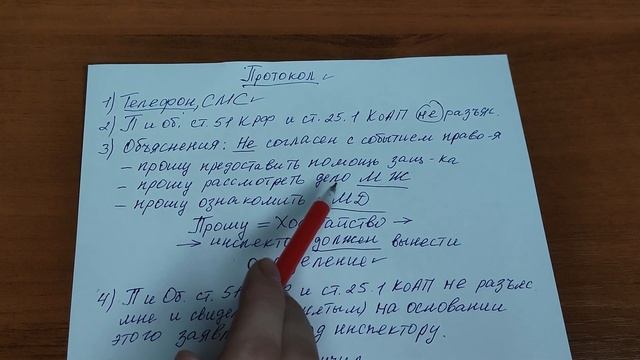 Протокол
1) Телефон, СМС
2) П и Об. ст. 51 КРФ и ст. 25.1 КоАП не разъяс.
3) Объяснения: Не согласен с событием право-я
- прошу предоставить помощь защ-ка
- прошу рассмотреть дело МЖ
- прошу ознакомить МД
Прошу = →
→ должен вынести
4) П и Об. ст. 51 и ст. 25.1 КоАП не разъяс
мне и на основании
этого инспектору.